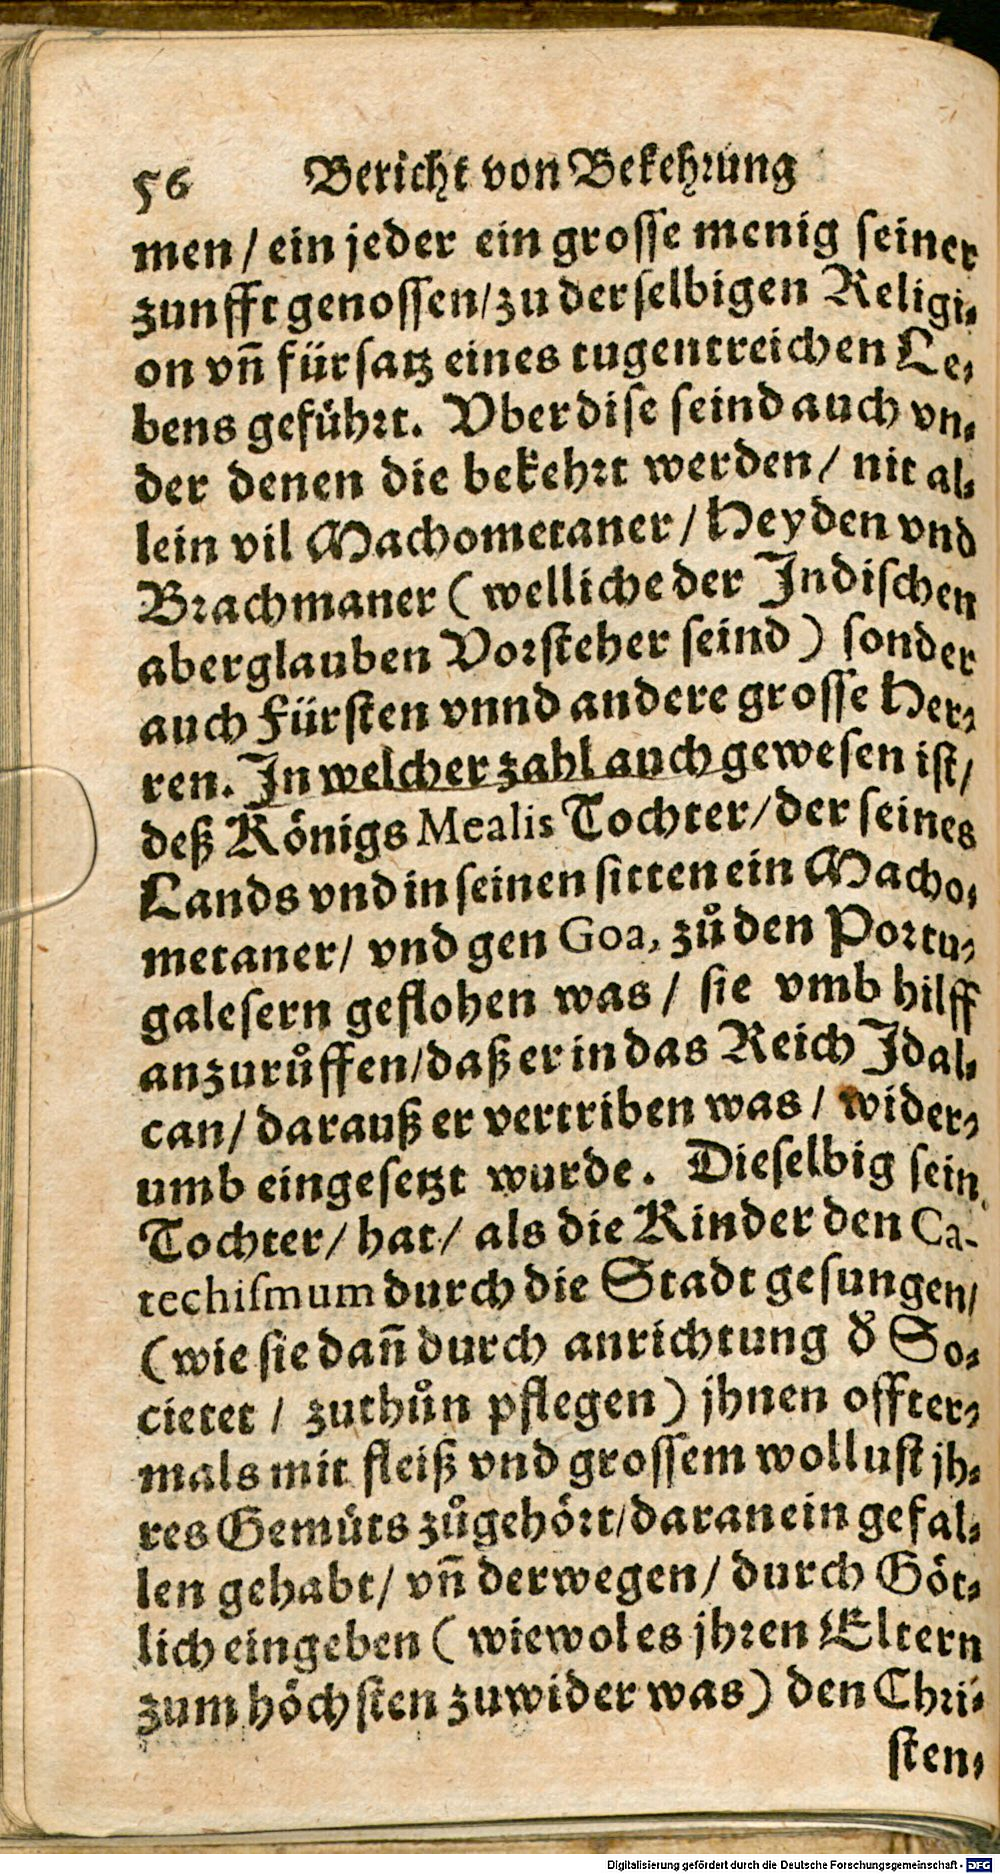 56 Bericht von Bekehrung
men / ein jeder ein grosse menig seiner
zunfft genossen/zu derselbigen Religi-
on vñ fürsatz eines tugentreichen Le-
bens geführt. Vber dise seind auch vn-
der denen die bekehrt werden / nit al-
lein vil Machometaner / Heyden vnd
Brachmaner ( welliche der Indischen
aberglauben Vorsteher seind ) sonder
auch Fürsten vnnd andere grosse Her-
ren. In welcher zahl auch gewesen ist/
deß Königs Mealis Tochter/der seines
Lands vnd in seinen sitten ein Macho-
metaner/ vnd gen Goa, zů den Portu-
galesern geflohen was / sie vmb hilff
anzurůffen/daß er in das Reich Idal-
can/ darauß er vertriben was / wider-
umb eingesetzt wurde. Dieselbig sein
Tochter/ hat/ als die Kinder den Ca-
techismum durch die Stadt gesungen/
(wie sie dañ durch anrichtung đ So-
cietet / zuthůn pflegen) jhnen offter-
mals mit fleiß vnd grossem wollust jh-
res Gemüts zůgehört/daran ein gefal-
len gehabt/ vñ derwegen/ durch Göt-
lich eingeben ( wiewol es jhren Eltern
zum höchsten zuwider was) den Chri-
sten-
Digitalisierung gefördert durch die Deutsche Forschungsgemeinschaft - DFG